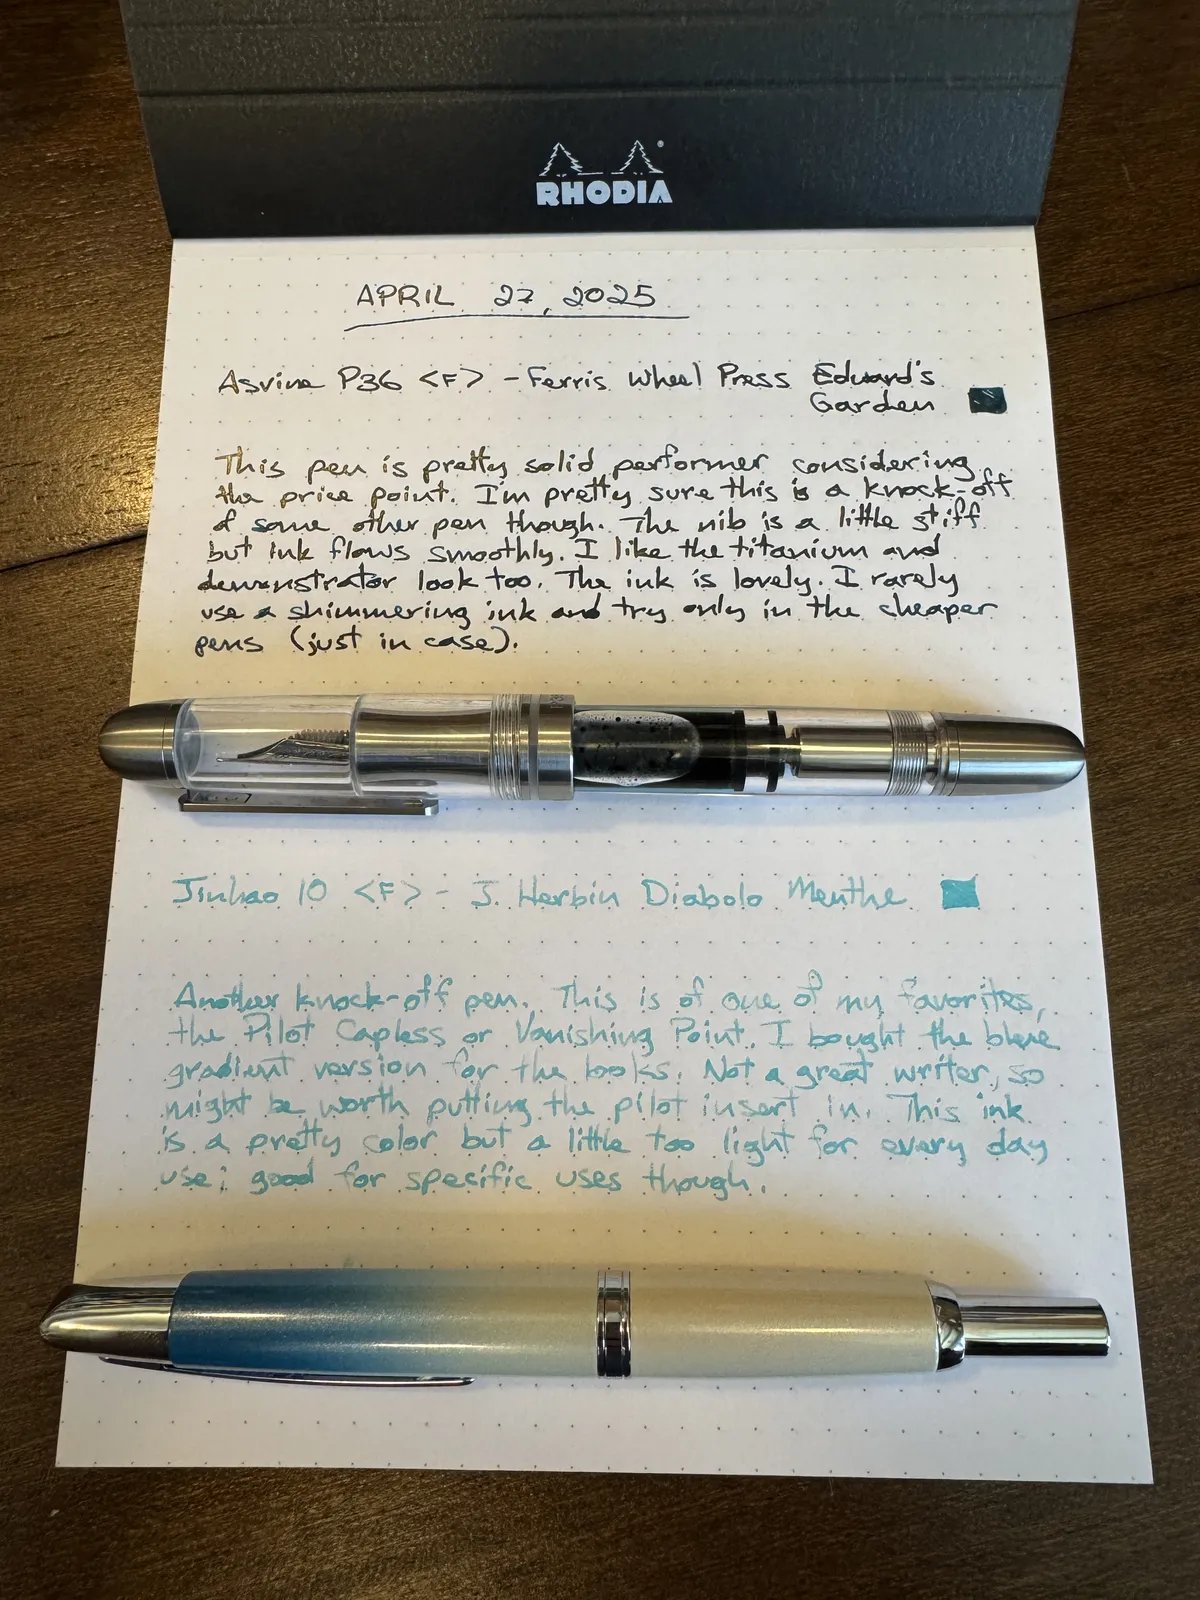 RHODIA
APRIL 27, 2025
Asvine P36 <F> - Ferris Wheel Press Edward's
Garden
This pen is pretty solid performer considering
the price point. I'm pretty sure this is a knock-off
of some other pen though. The nib is a little stiff
but ink flows smoothly. I like the titanium and
demonstrator look too. The ink is lovely. I rarely
use a shimmering ink and try only in the cheaper
pens (just in case).
Jinhao 10 <F> - J. Herbin Diabolo Menthe
Another knock-off pen. This is of one of my favorites,
the Pilot Capless or Vanishing Point. I bought the blue
gradient version for the looks. Not a great writer, so
might be worth putting the pilot insert in. This ink
is a pretty color but a little too light for every day
use; good for specific uses though.